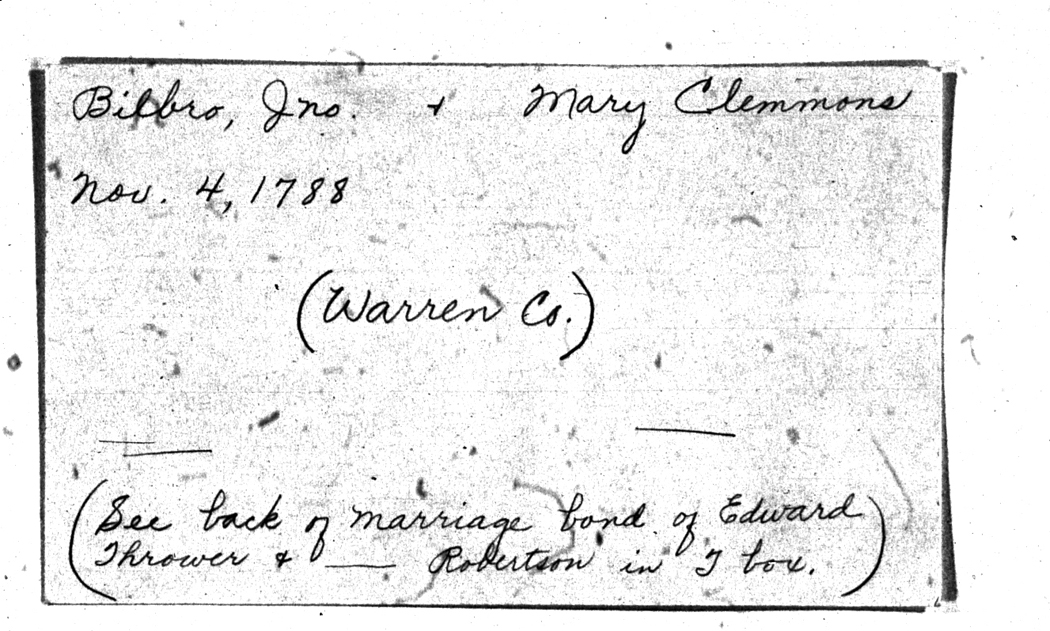 Bilbro, Jno. + Mary Clemmons
Nov. 4, 1788
(Warren Co.)
(See back of marriage bond of Edward
Thrower + ___ Robertson in T box.)